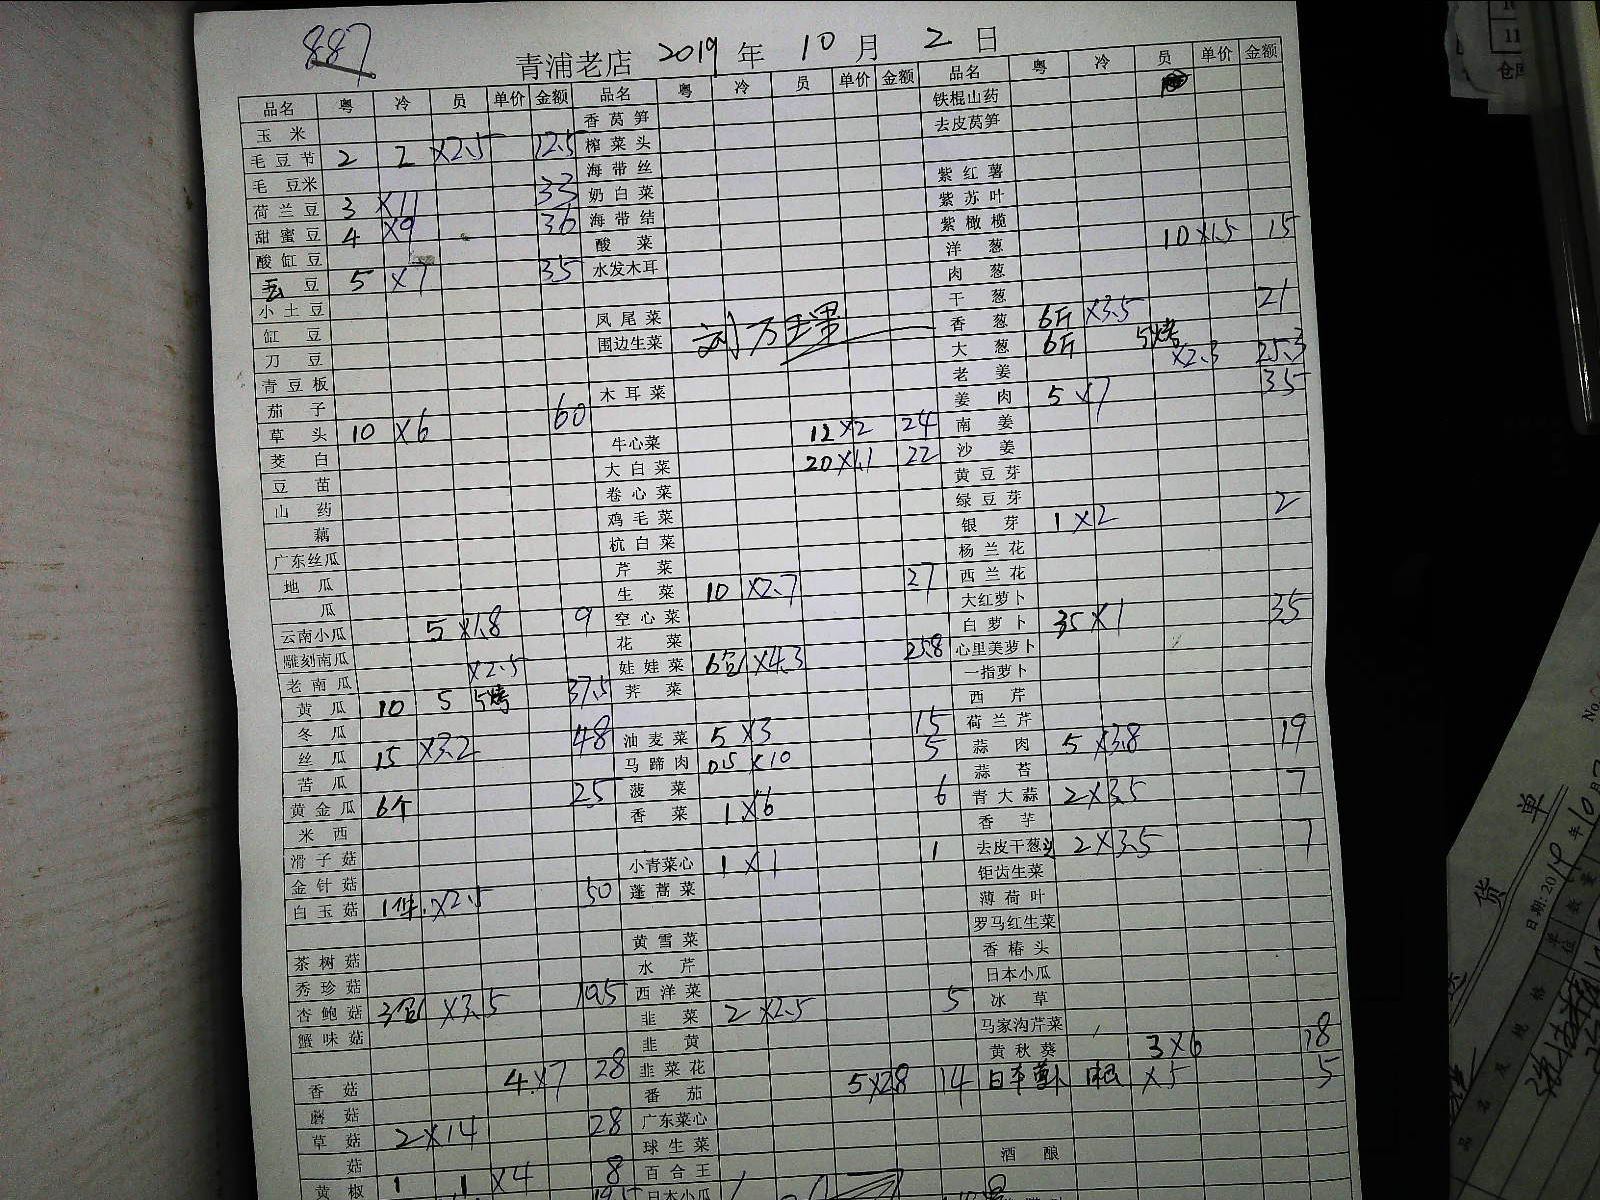 887
青浦老店 2019 年 10 月 2 日
品名 粤 冷 员 单价 金额 品名 粤 冷 员 单价 金额 品名 粤 冷 员 单价 金额
玉米
毛豆节 2 2 ×2.5 12.5
毛豆米
荷兰豆 3 ×11 33
甜蜜豆 4 ×9 36
酸缸豆
毛豆 5 ×7 35
小土豆
缸豆
刀豆
青豆板
茄子
草头 10 ×6 60
茭白
豆苗
山药
藕
广东丝瓜
地瓜
瓜
云南小瓜 5 ×1.8 9
雕刻南瓜
老南瓜 ×2.5
黄瓜 10 5 5烤 37.5
冬瓜
丝瓜 15 ×3.2 48
苦瓜
黄金瓜 6个 25
米西
滑子菇
金针菇
白玉菇 1件 ×2.5 50
茶树菇
秀珍菇
杏鲍菇 3包 ×3.5 10.5
蟹味菇
香菇 4×7 28
蘑菇
草菇 2×14 28
菇
黄椒 1 1 ×4 8
香莴笋
榨菜头
海带丝
奶白菜
海带结
酸菜
水发木耳
凤尾菜
围边生菜
木耳菜
牛心菜 12×2 24
大白菜 20×1.1 22
卷心菜
鸡毛菜
杭白菜
芹菜
生菜 10 ×2.7 27
空心菜
花菜
娃娃菜 6包 ×4.3 25.8
荠菜
油麦菜 5 ×3 15
马蹄肉 0.5 ×10 5
菠菜
香菜 1×6 6
小青菜心 1×1 1
蓬蒿菜
黄雪菜
水芹
西洋菜
韭菜 2×2.5 5
韭黄
韭菜花
番茄 5×2.8 14
广东菜心
球生菜
百合王
日本小瓜
铁棍山药
去皮莴笋
紫红薯
紫苏叶
紫橄榄
洋葱 10×1.5 15
肉葱
干葱
香葱 6斤 ×3.5 21
大葱 6斤 5烤 ×2.3 25.3
老姜
姜肉 5 ×7 35
南姜
沙姜
黄豆芽
绿豆芽
银芽 1×2 2
杨兰花
西兰花
大红萝卜
白萝卜 35×1 35
心里美萝卜
一指萝卜
西芹
荷兰芹
蒜肉 5 ×3.8 19
蒜苔
青大蒜 2×3.5 7
香芋
去皮干葱头 2×3.5 7
钜齿生菜
薄荷叶
罗马红生菜
香椿头
日本小瓜
冰草
马家沟芹菜
黄秋葵 3×6 18
日本萝卜 1根 ×5 5
酒酿
11
仓库
货 单
日期:2019年10月
单位 数量
品名及规格